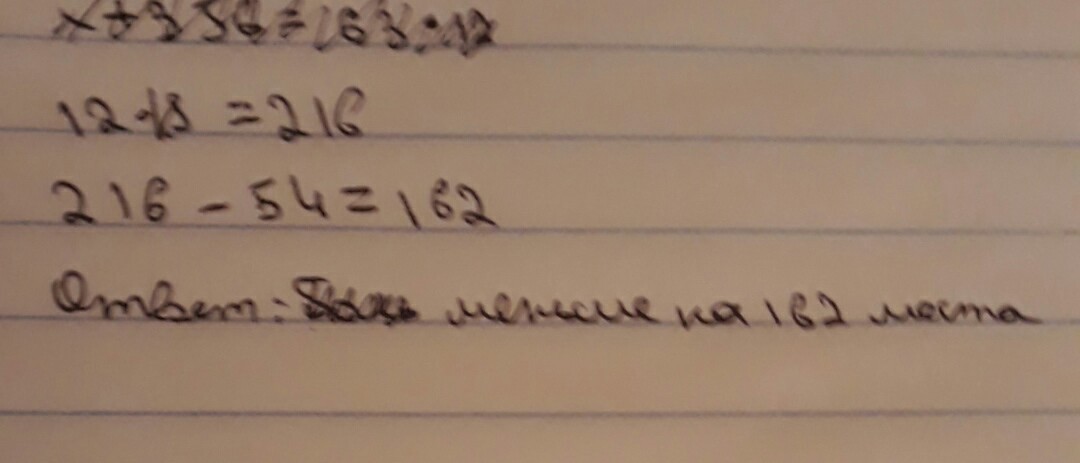 12·18 = 216
216 - 54 = 162
Ответ: меньше на 162 места